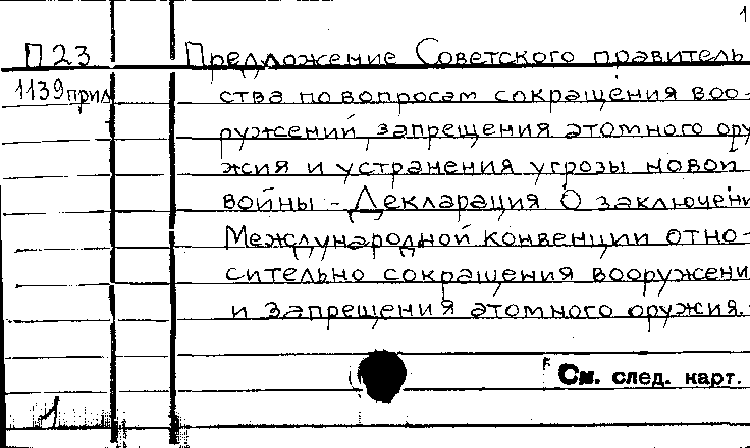 1
П23 Предложение Советского правитель
1139прил ства по вопросам сокращения воо-
ружений, запрещения атомного ору
жия и устранения угрозы новой
войны - Декларация О заключени
Международной конвенции отно-
сительно сокращения вооружени
и запрещения атомного оружия.
См. след. карт.
1